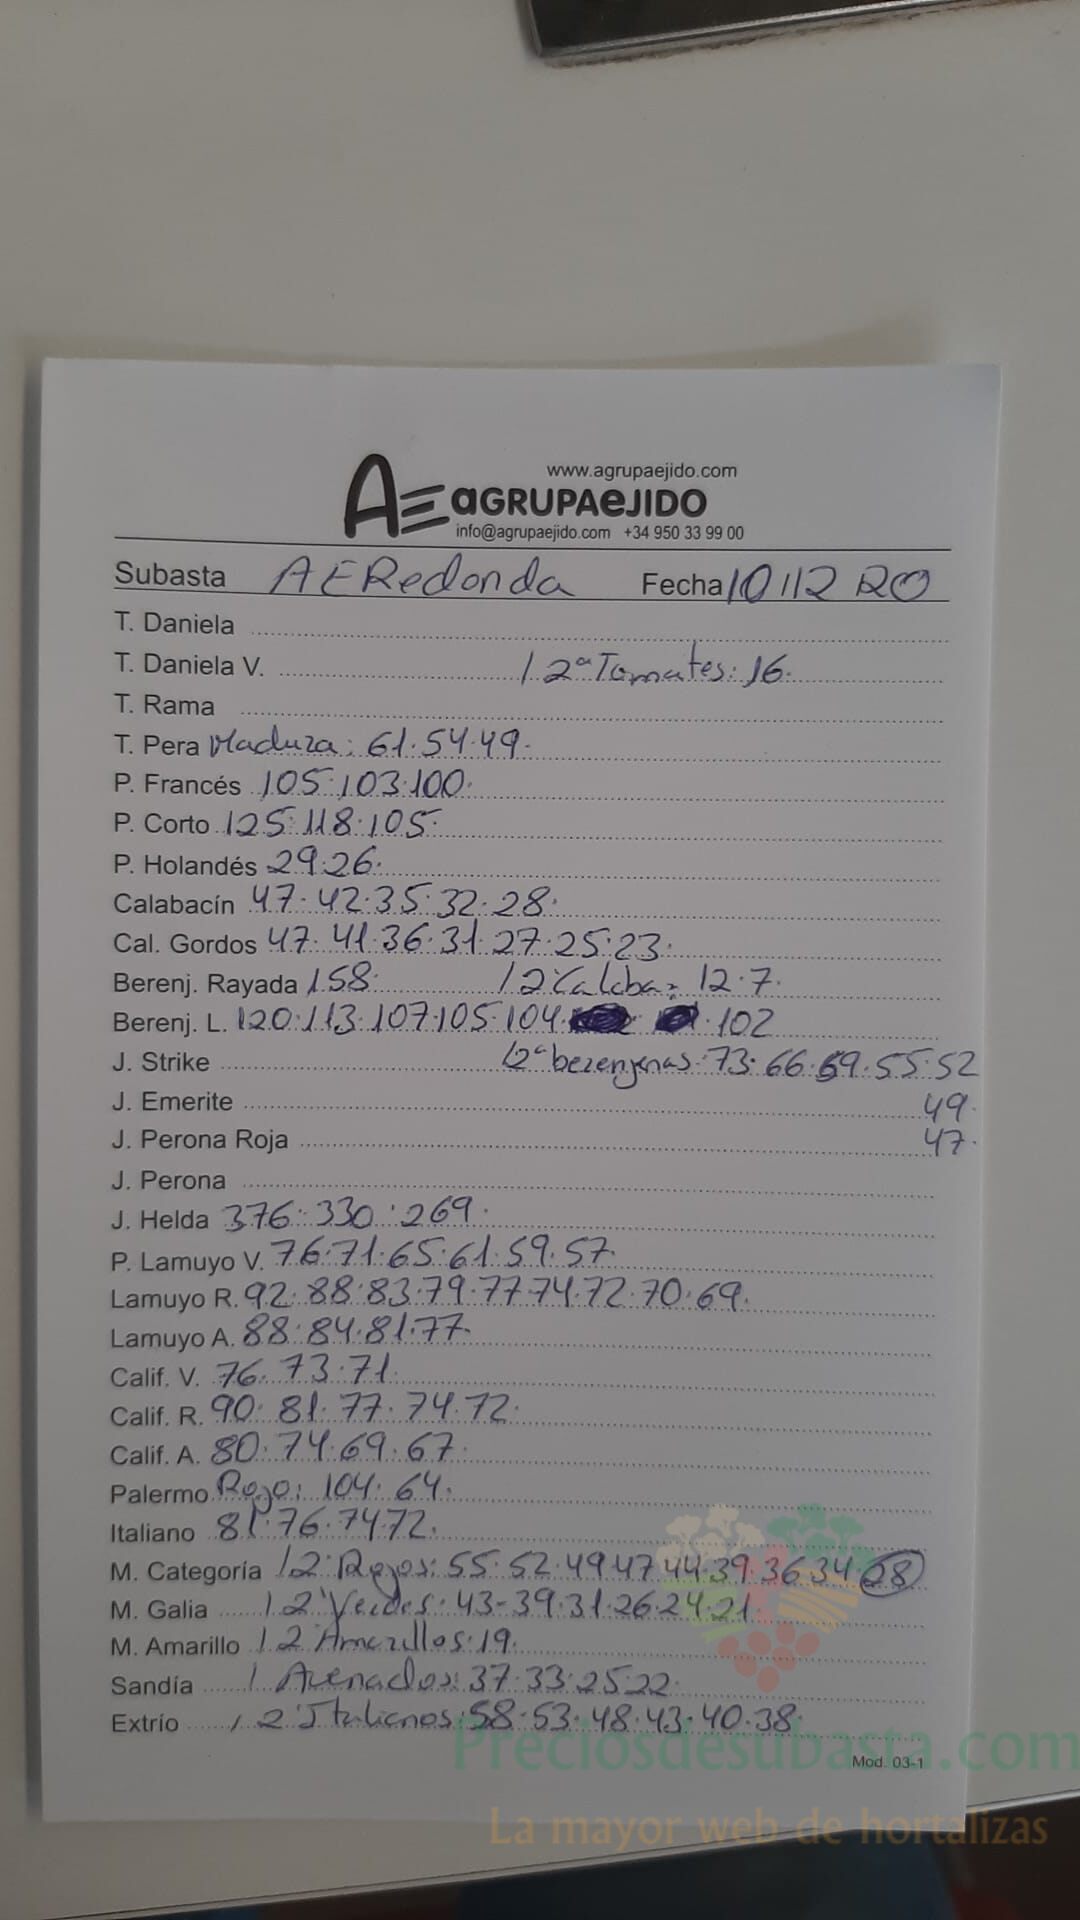 www.agrupaejido.com
AE aGRUPAeJIDO
info@agrupaejido.com +34 950 33 99 00
Subasta AERedonda Fecha 10 112 20
T. Daniela
T. Daniela V. / 2ª Tomates: 16.
T. Rama
T. Pera Madura: 61.54.49.
P. Francés 105.103.100.
P. Corto 125.118.105.
P. Holandés 29.26.
Calabacín 47.42.35.32.28.
Cal. Gordos 47.41.36.31.27.25.23.
Berenj. Rayada 158. / 2ª Calaba: 12.7.
Berenj. L. 120.113.107.105.104. 102
J. Strike / 2ª berenjenas.73.66.59.55.52
J. Emerite 49.
J. Perona Roja 47.
J. Perona
J. Helda 376.330.269.
P. Lamuyo V. 76.71.65.61.59.57.
Lamuyo R. 92.88.83.79.77.74.72.70.69.
Lamuyo A. 88.84.81.77.
Calif. V. 76.73.71.
Calif. R. 90.81.77.74.72.
Calif. A. 80.74.69.67.
Palermo Rojo: 104.64.
Italiano 81.76.74.72.
M. Categoría / 2ª Rojos: 55.52.49.47.44.39.36.34.28
M. Galia / 2ª Verdes: 43-39.31.26.24.21.
M. Amarillo / 2ª Amarillos: 19.
Sandía / Asenados: 37.33.25.22.
Extrío / 2ª Italianos: 58.53.48.43.40.38.
Preciosdesubasta.com
Mod. 03-1
La mayor web de hortalizas